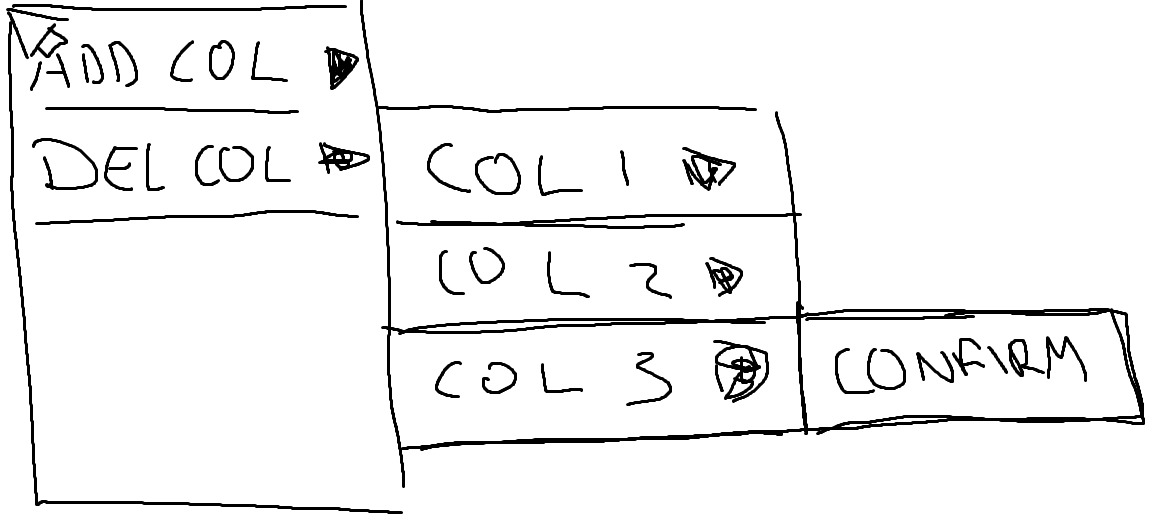 ADD COL
DEL COL
COL 1
COL 2
COL 3
CONFIRM